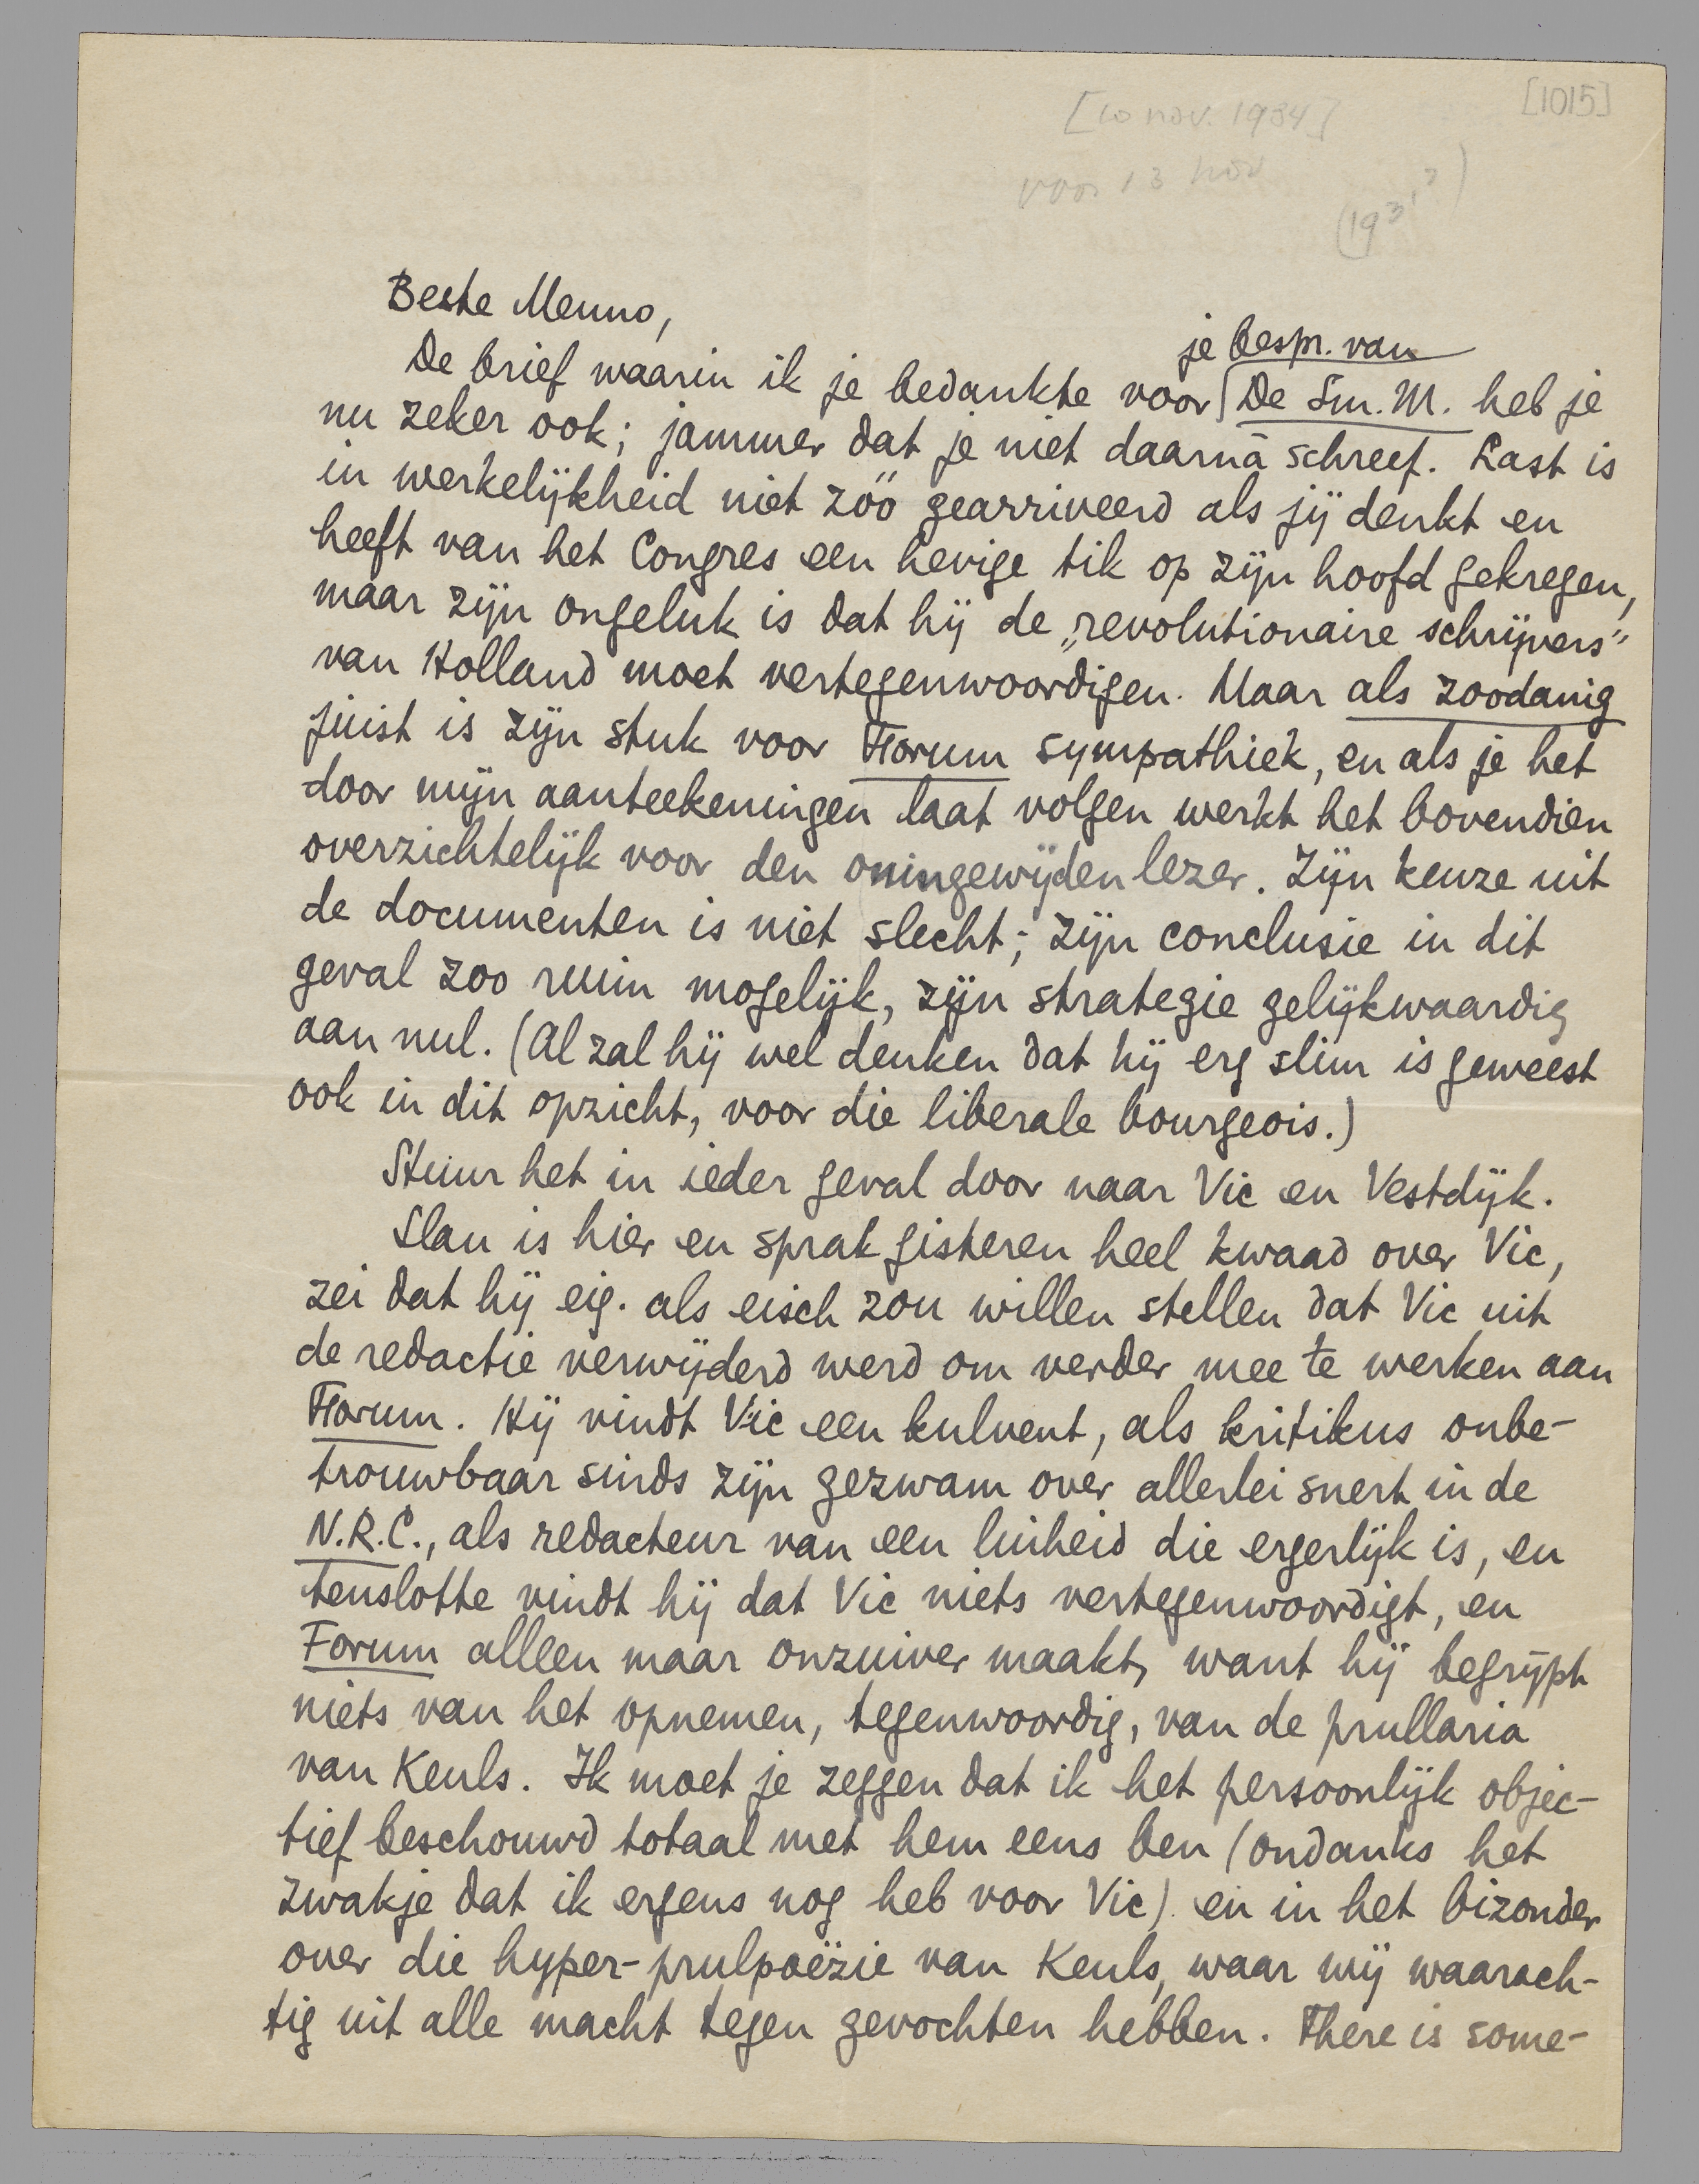 [10 nov. 1934]
[1015]
voor 13 nov
Beste Menno,
je bespr. van
De brief waarin ik je bedankte voor De Sm. M. heb je
nu zeker ook; jammer dat je niet daarná schreef. Last is
in werkelijkheid niet zóó gearriveerd als jij denkt en
heeft van het Congres een hevige tik op zijn hoofd gekregen,
maar zijn ongeluk is dat hij de „revolutionaire schrijvers”
van Holland moet vertegenwoordigen. Maar als zoodanig
juist is zijn stuk voor Forum sympathiek, en als je het
door mijn aanteekeningen laat volgen werkt het bovendien
overzichtelijk voor den oningewijden lezer. Zijn keuze uit
de documenten is niet slecht; zijn conclusie in dit
geval zoo ruim mogelijk, zijn strategie gelijkwaardig
aan nul. (Al zal hij wel denken dat hij erg slim is geweest
ook in dit opzicht, voor die liberale bourgeois.)
Stuur het in ieder geval door naar Vic en Vestdijk.
Slau is hier en sprak gisteren heel kwaad over Vic,
zei dat hij eig. als eisch zou willen stellen dat Vic uit
de redactie verwijderd werd om verder mee te werken aan
Forum. Hij vindt Vic een kulvent, als kritikus onbe-
trouwbaar sinds zijn gezwam over allerlei snert in de
N.R.C., als redacteur van een luiheid die ergerlijk is, en
tenslotte vindt hij dat Vic niets vertegenwoordigt, en
Forum alleen maar onzuiver maakt, want hij begrijpt
niets van het opnemen, tegenwoordig, van de prullaria
van Keuls. Ik moet je zeggen dat ik het persoonlijk objec-
tief beschouwd totaal met hem eens ben (ondanks het
zwakje dat ik ergens nog heb voor Vic) en in het bizonder
over die hyper-prulpoëzie van Keuls, waar wij waarach-
tig uit alle macht tegen gevochten hebben. There is some-